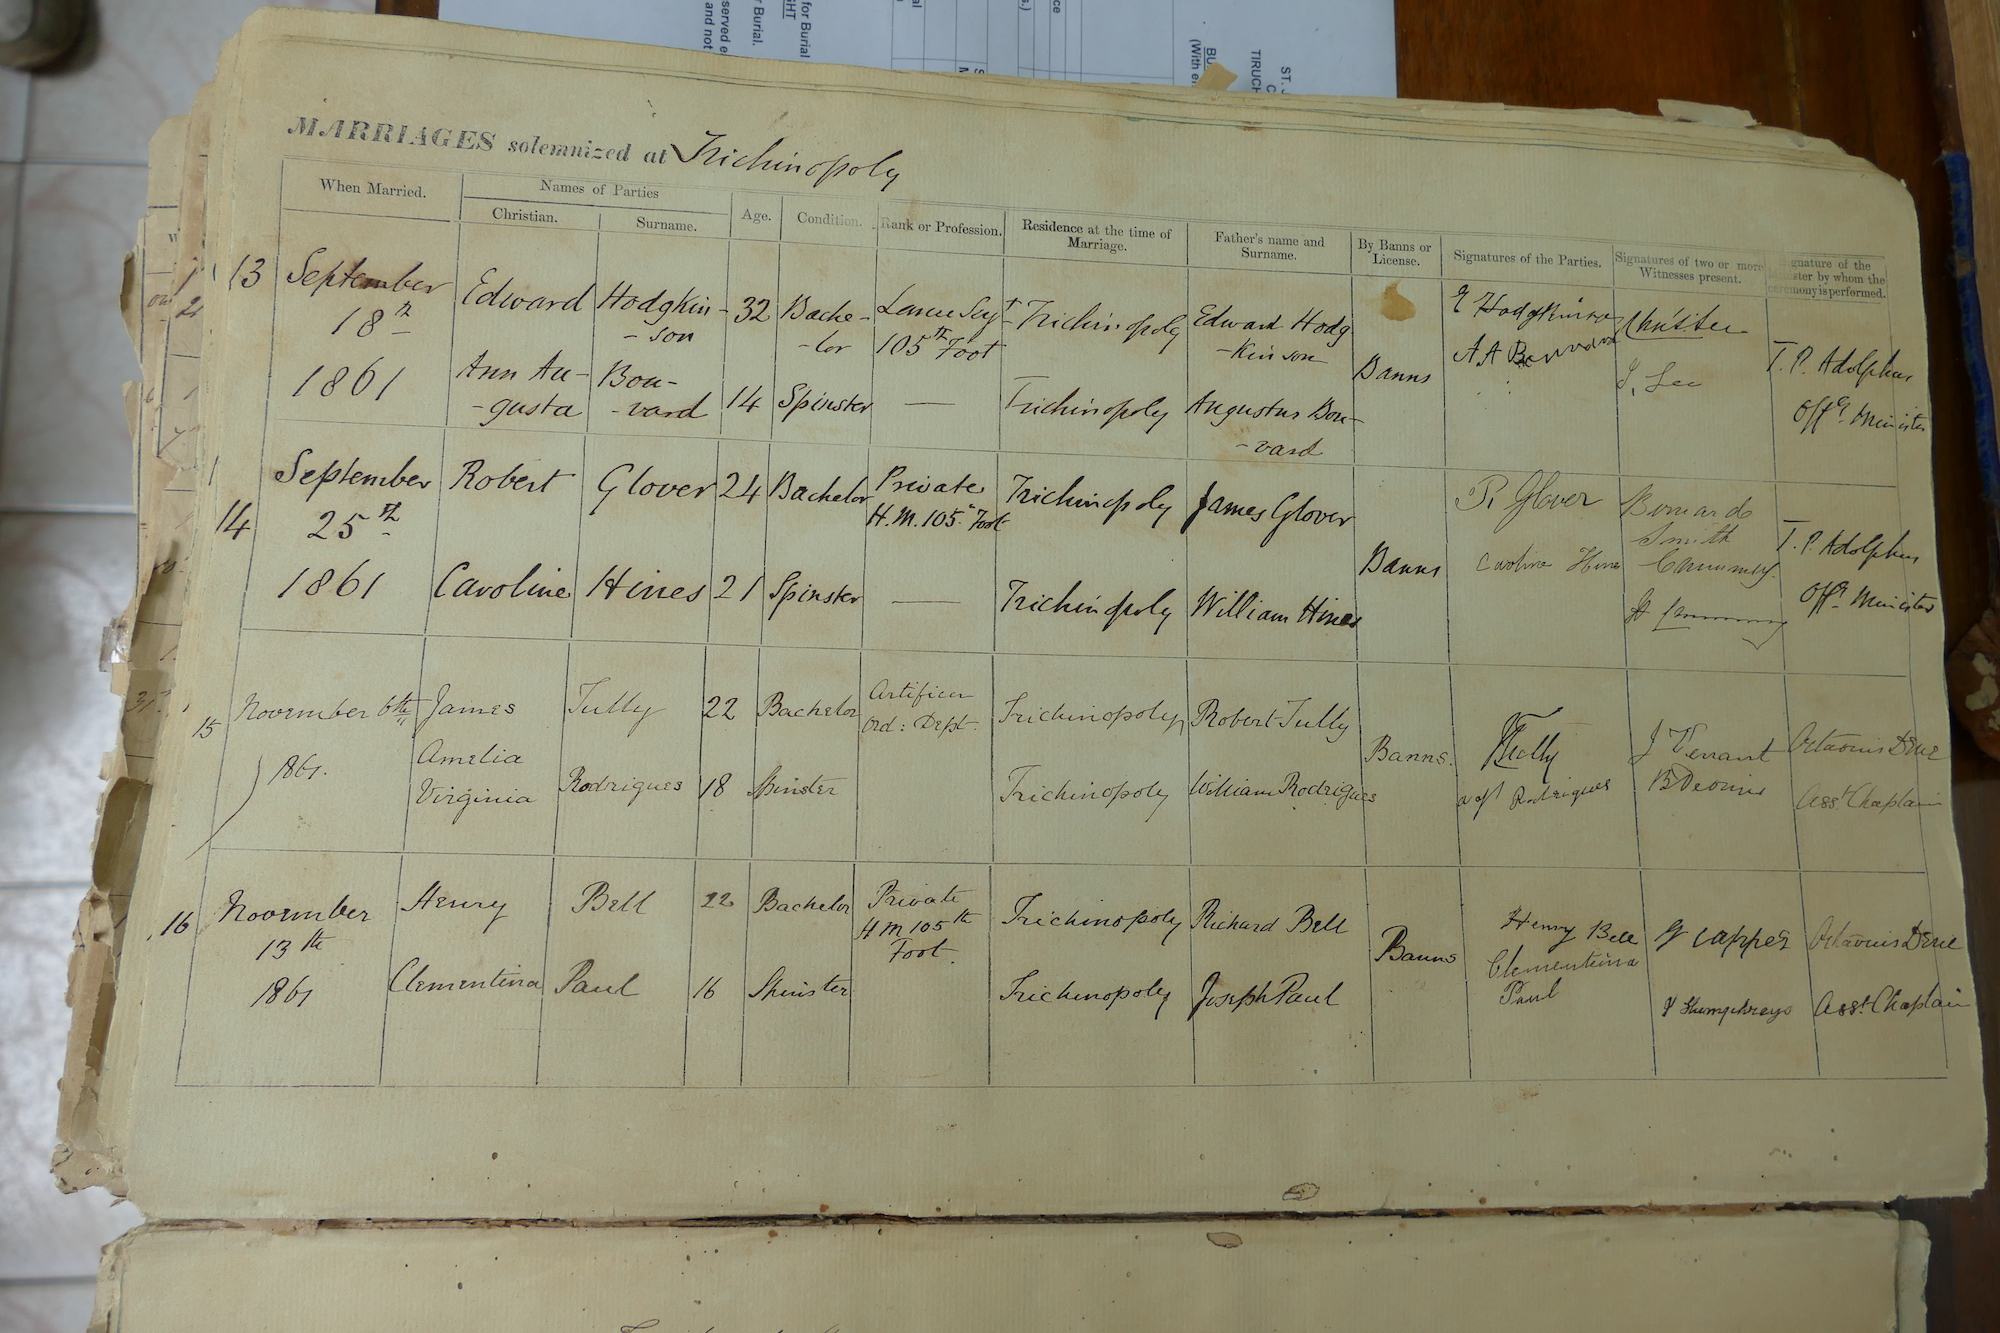 MARRIAGES solemnized at Trichinopoly
When Married.
Names of Parties
Christian.
Surname.
Age.
Condition.
Rank or Profession.
Residence at the time of
Marriage.
Father's name and
Surname.
By Banns or
License.
Signatures of the Parties.
Signatures of two or more
Witnesses present.
Signature of the
by whom the
ceremony is performed.
13
September
18th
1861
Edward
Hodgkin-
-son
32
Bache-
-lor
Lance Sergt
105th Foot
Trichinopoly
Edward Hodg
-kinson
Ann Au-
-gusta
Bou-
-vard
14
Spinster
—
Trichinopoly
Augustus Bou-
-vard
Banns
E Hodgkinson
A A Bouvard
J. Lee
T. P. Adolphus
Offg. Minister
14
September
25th
1861
Robert
Glover
24
Bachelor
Private
H.M. 105th Foot
Trichinopoly
James Glover
Caroline
Hines
21
Spinster
—
Trichinopoly
William Hines
Banns
R. Glover
Caroline Hines
Smith
T. P. Adolphus
Offg. Minister
15
November 6th
1861.
James
Tully
22
Bachelor
Artificer
Ord: Dept.
Trichinopoly
Robert Tully
Amelia
Virginia
Rodrigues
18
Spinster
Trichinopoly
William Rodrigues
Banns.
Tully
Rodrigues
Asst Chaplain
16
November
13th
1861
Henry
Bell
22
Bachelor
Private
H M 105th
Foot.
Trichinopoly
Richard Bell
Clementina
Paul
16
Spinster
Trichinopoly
Joseph Paul
Banns
Henry Bell
Clementina
Paul
Humphreys
Asst Chaplain
ST. J
TIRUCH
BU
(With e
for Burial
GHT
r Burial.
served e
and not